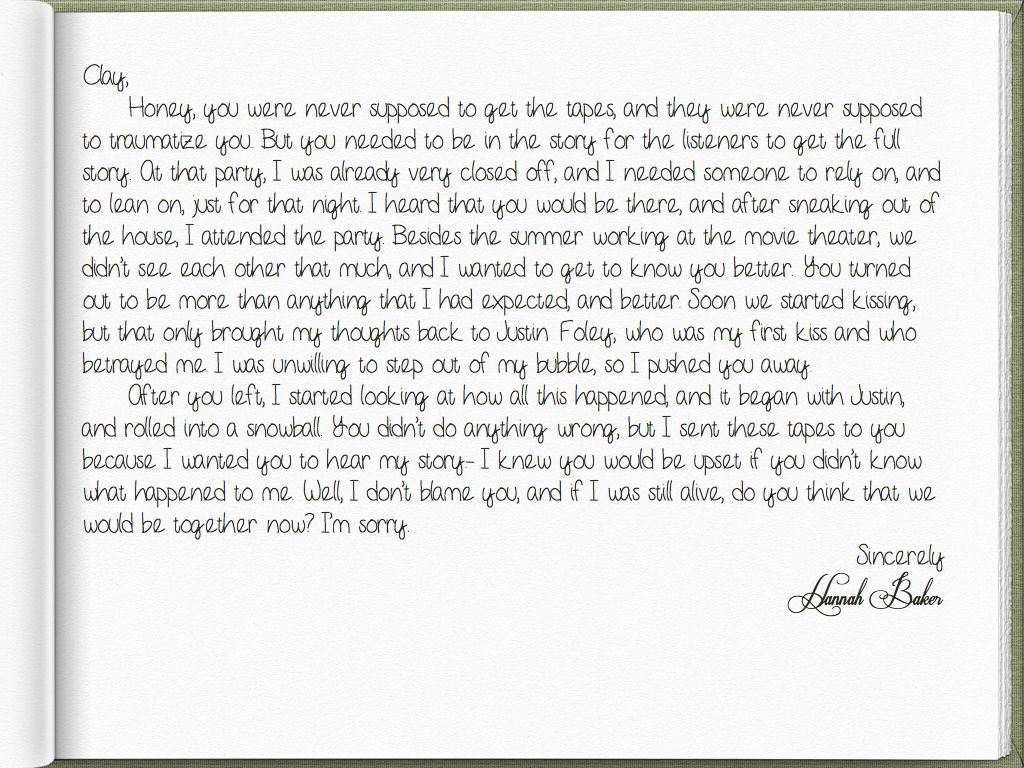 Clay,
Honey, you were never supposed to get the tapes, and they were never supposed
to traumatize you. But you needed to be in the story for the listeners to get the full
story. At that party, I was already very closed off, and I needed someone to rely on, and
to lean on, just for that night. I heard that you would be there, and after sneaking out of
the house, I attended the party. Besides the summer working at the movie theater, we
didn't see each other that much, and I wanted to get to know you better. You turned
out to be more than anything that I had expected, and better. Soon we started kissing,
but that only brought my thoughts back to Justin Foley, who was my first kiss and who
betrayed me. I was unwilling to step out of my bubble, so I pushed you away.
After you left, I started looking at how all this happened, and it began with Justin,
and rolled into a snowball. You didn't do anything wrong, but I sent these tapes to you
because I wanted you to hear my story- I knew you would be upset if you didn't know
what happened to me. Well, I don't blame you, and if I was still alive, do you think that we
would be together now? I'm sorry.
Sincerely
Hannah Baker